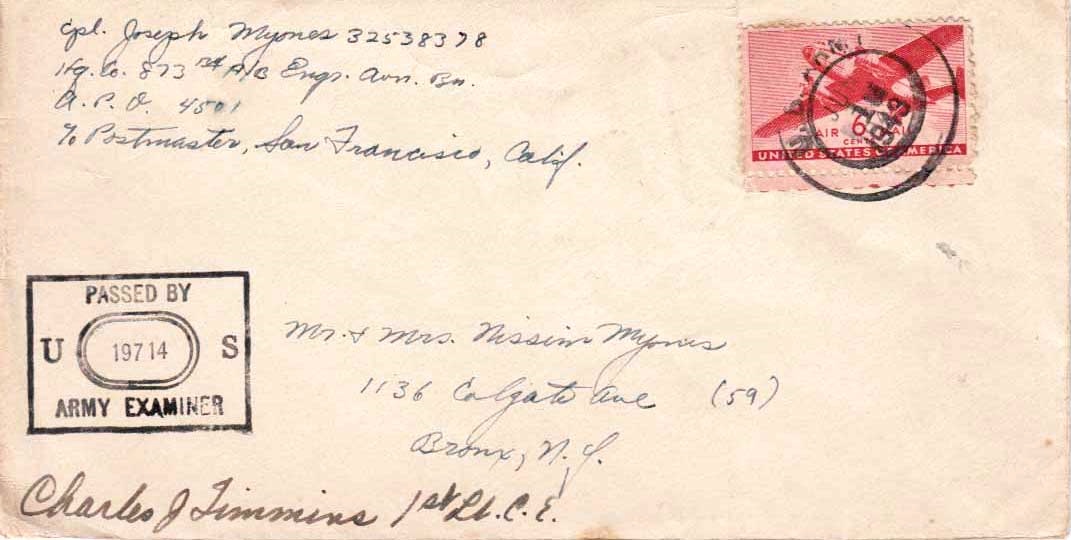 Cpl. Joseph Myones 32538378
Hq. Co. 873rd A/B Engr. Avn. Bn.
A. P. O. 4501
c/o Postmaster, San Francisco, Calif.
AIR 6 AIR
CENTS
UNITED STATES OF AMERICA
PASSED BY
U 19714 S
ARMY EXAMINER
Mr. & Mrs. Nissim Myones
1136 Colgate Ave (59)
Bronx, N. Y.
Charles J Timmins 1st Lt. C. E.